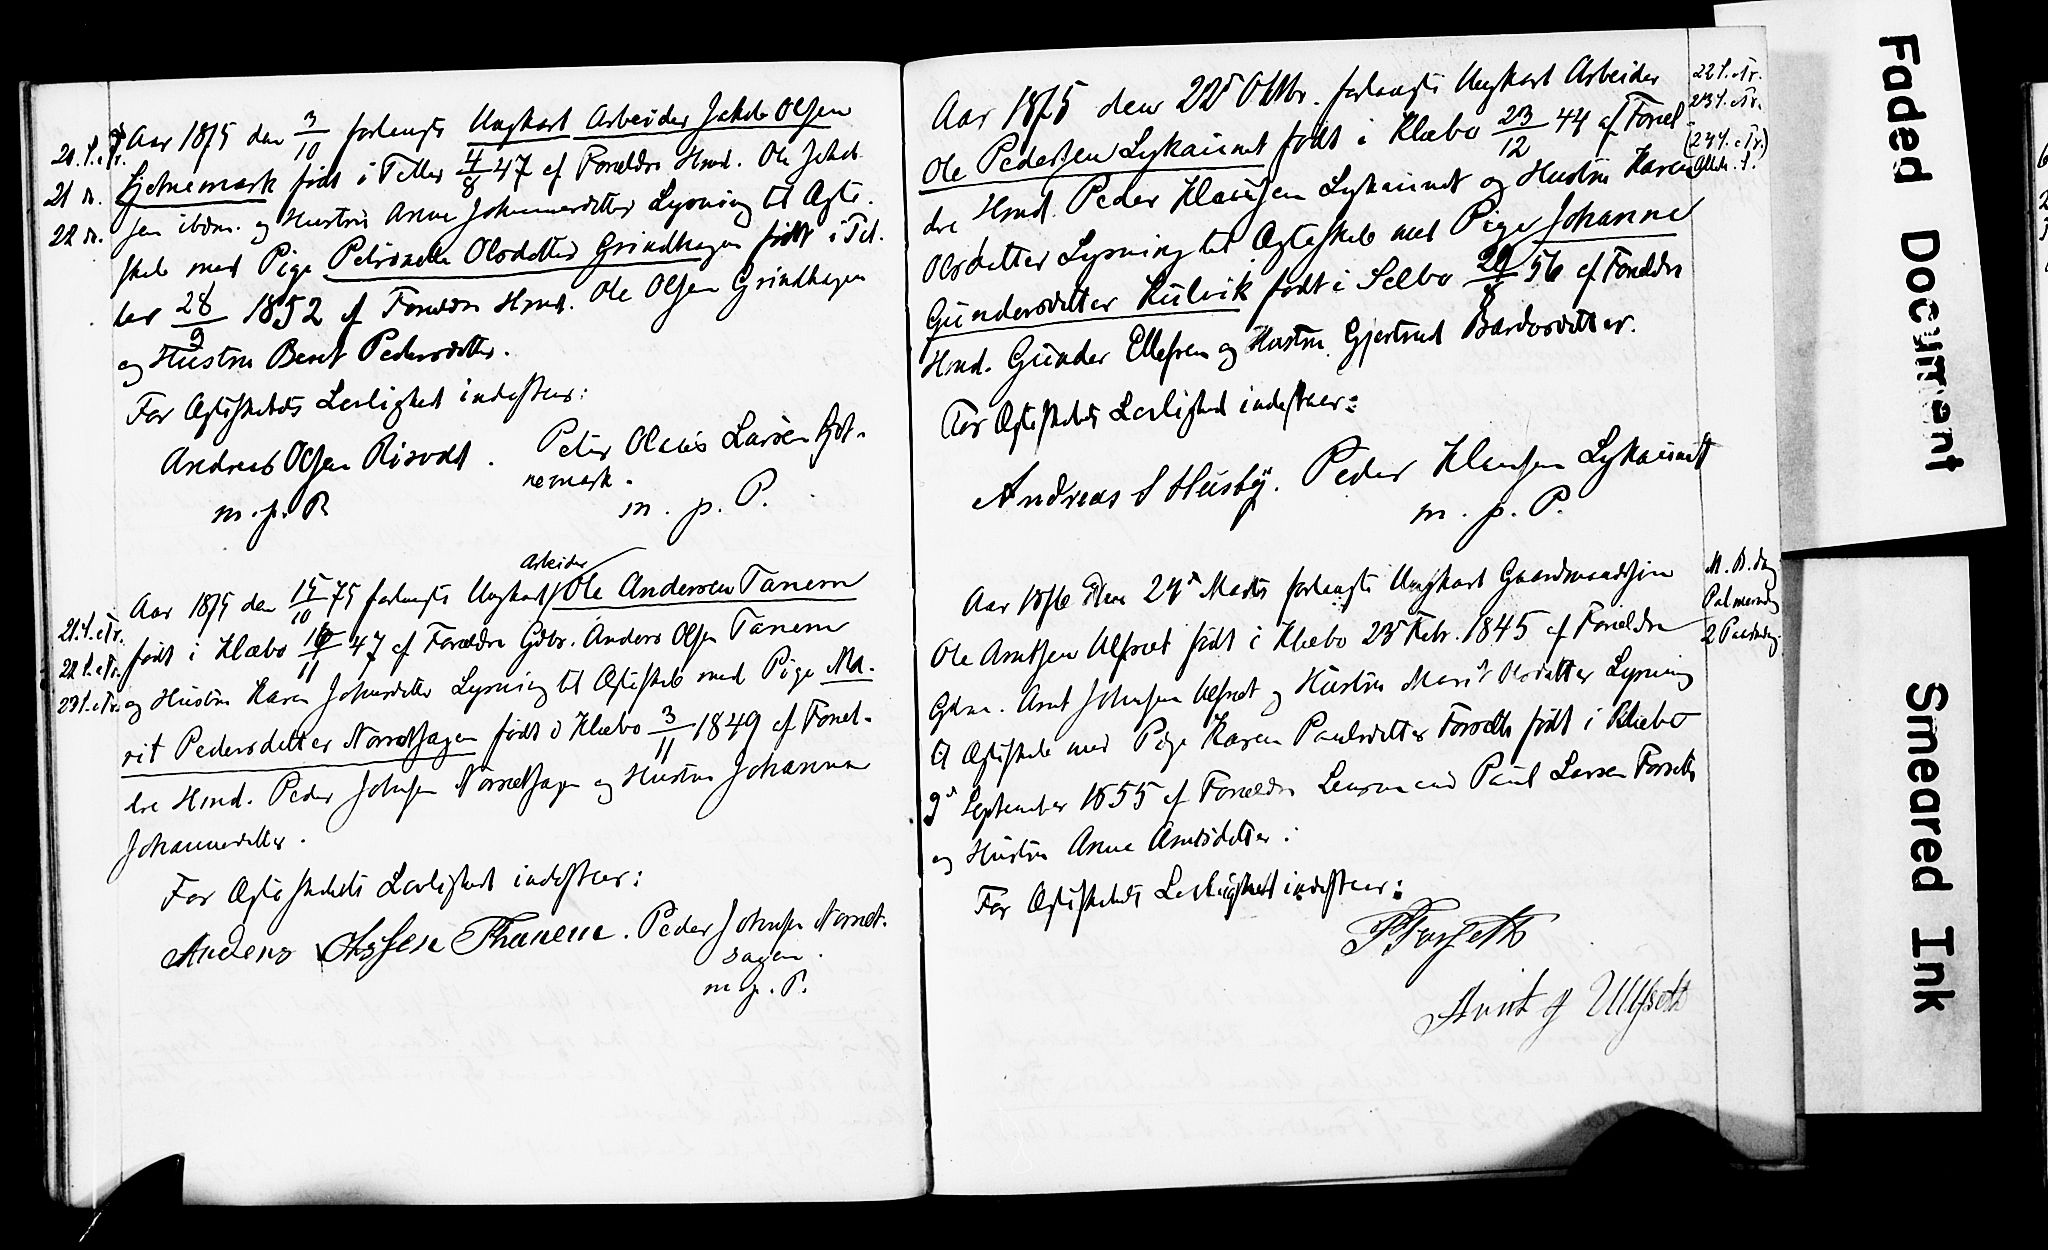 20. S. e. Tr.
21 n.
22 n.
Aar 1875 den 3/10 forlangte Ungkarl Arbeider Jakob Olsen
Tjetnemark født i Tiller 4/8 47 af Forældre Hmd. Ole Jakob
sen ibdm. og Hustru Anne Johannesdatter Lysning til Ægte-
skab med Pige Petronelle Olsdatter Grindhagen født i Til-
ler 28/9 1852 af Forældre Hmd. Ole Olsen Grindhagen
og Hustru Beret Pedersdatter.
For Ægteskabets Lovlighed indestaar:
Andreas Olsen Risvodt. Peter Olaus Larsen Tjet-
nemark.
m. p. P. m. p. P.
21 S. e. Tr.
22 S. e. Tr.
23 S. e. Tr.
Arbeider
Aar 1875 den 15/10 75 forlangte Ungkarl Ole Andersen Tanem
født i Klæbo 16/11 47 af Forældre Gdbr. Anders Olsen Tanem
og Hustru Karen Johnsdatter Lysning til Ægteskab med Pige Ma-
rit Pedersdatter Norsetsagen født i Klæbo 3/11 1849 af Foræl-
dre Hmd. Peder Johnsen Norsetsagen og Hustru Johanna
Johannesdatter.
For Ægteskabets Lovlighed indestaar:
Anders Olssen Thanem. Peder Johnsen Norset-
sagen.
m. p. P.
22 S. e. Tr.
23 S. e. Tr.
(24 S. e. Tr.)
Alleh. S.
Aar 1875 den 22de Oktbr. forlangte Ungkarl Arbeider
Ole Pedersen Lykaunet født i Klæbo 23/12 44 af Foræl
dre Hmd. Peder Klausen Lykaunet og Hustru Karen
Olsdatter Lysning til Ægteskab med Pige Johanne
Gundersdatter Kulvik født i Selbo 29/8 56 af Forældre
Hmd. Gunder Ellefsen og Hustru Gjertrud Bardosdatter.
For Ægteskabets Lovlighed indestaar:
Andreas S Husby. Peder Klausen Lykaunet
m. p. P.
M. B. dag
Palmesøndag
2 Paaskedag
Aar 1876 den 24de Marts forlangte Ungkarl Gaardmandssøn
Ole Arntsen Ulset født i Klæbo 23de Febr. 1845 af Forældre
Gdm. Arnt Johnsen Ulset og Hustru Marit Olsdatter Lysning
til Ægteskab med Pige Karen Paulsdatter Forseth født i Klæbo
9de September 1855 af Forældre Lensmand Paul Larsen Forseth
og Hustru Anne Arntsdatter.
For Ægteskabets Lovlighed indestaar:
P Forseth
Arnt J Ulfseth
Faded Document
Smeared Ink